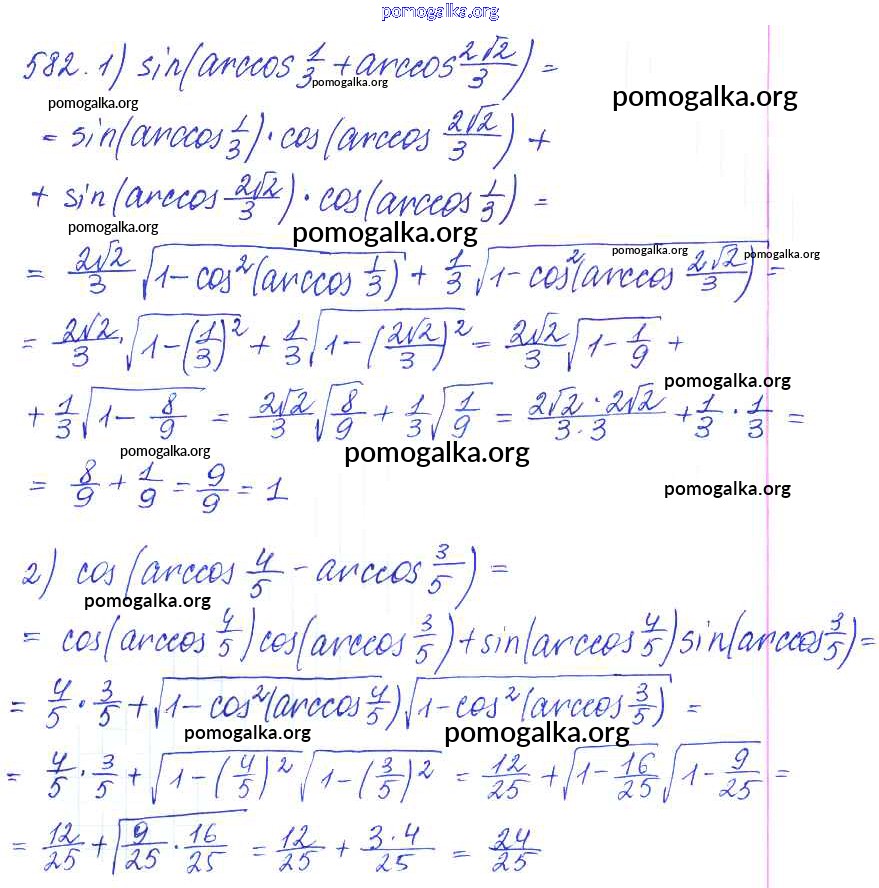 pomogalka.org
582. 1) sin(arccos 1/3 + arccos 2√2/3) =
pomogalka.org
pomogalka.org
pomogalka.org
= sin(arccos 1/3) · cos(arccos 2√2/3) +
+ sin(arccos 2√2/3) · cos(arccos 1/3) =
pomogalka.org
pomogalka.org
pomogalka.org
pomogalka.org
= 2√2/3 √(1-cos²(arccos 1/3)) + 1/3 √(1-cos²(arccos 2√2/3)) =
= 2√2/3 · √(1-(1/3)²) + 1/3 √(1-(2√2/3)²) = 2√2/3 √(1-1/9) +
pomogalka.org
+ 1/3 √(1-8/9) = 2√2/3 √(8/9) + 1/3 √(1/9) = 2√2·2√2/3·3 + 1/3 · 1/3 =
pomogalka.org
pomogalka.org
= 8/9 + 1/9 = 9/9 = 1
pomogalka.org
2) cos(arccos 4/5 - arccos 3/5) =
pomogalka.org
= cos(arccos 4/5)cos(arccos 3/5)+sin(arccos 4/5)sin(arccos 3/5)=
= 4/5 · 3/5 + √(1-cos²(arccos 4/5)) √(1-cos²(arccos 3/5)) =
pomogalka.org
pomogalka.org
= 4/5 · 3/5 + √(1-(4/5)²) √(1-(3/5)²) = 12/25 + √(1-16/25) √(1-9/25) =
= 12/25 + √(9/25 · 16/25) = 12/25 + 3·4/25 = 24/25